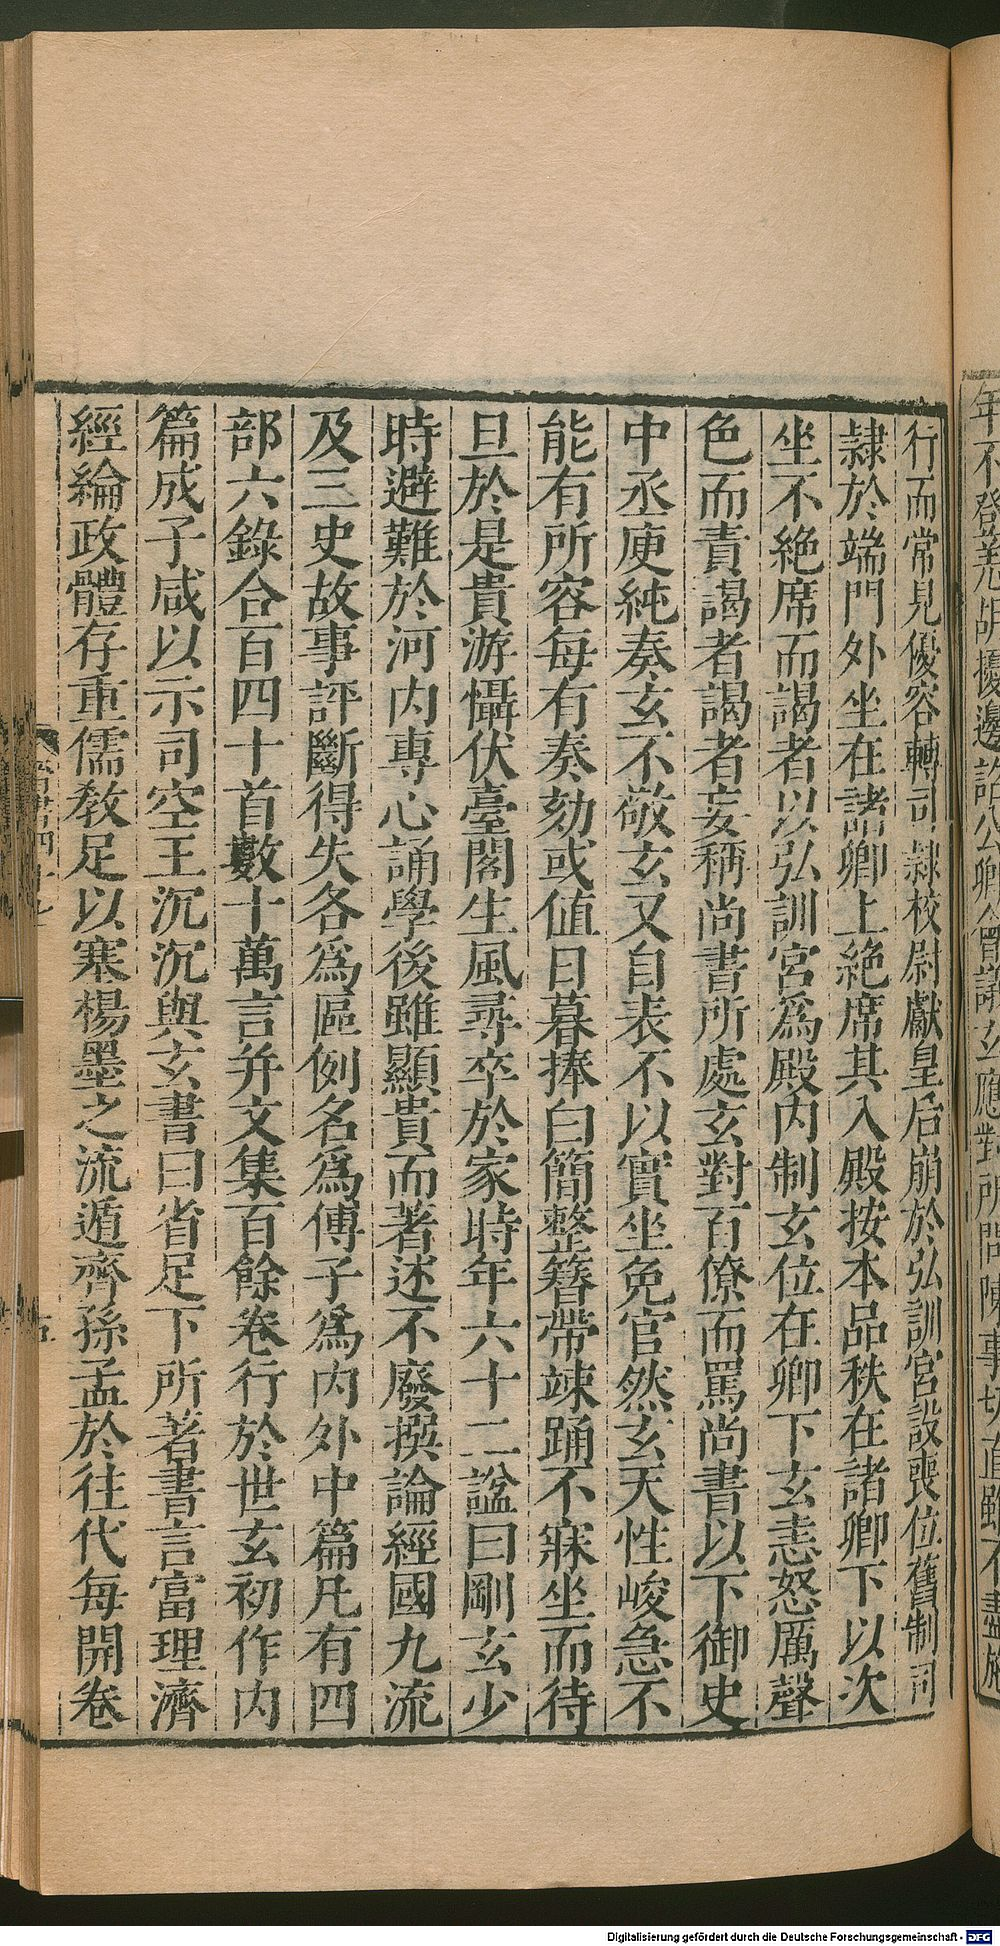 行而常見優容轉司隷校尉獻皇后崩於弘訓宮設喪位舊制司
隷於端門外坐在諸卿上絶席其入殿按本品秩在諸卿下以次
坐不絶席而謁者以弘訓宮爲殿内制玄位在卿下玄恚怒厲聲
色而責謁者謁者妄稱尚書所處玄對百僚而罵尚書以下御史
中丞庾純奏玄不敬玄又自表不以實坐免官然玄天性峻急不
能有所容每有奏劾或值日暮捧白簡整簪帶竦踊不寐坐而待
旦於是貴游懾伏臺閣生風尋卒於家時年六十二諡曰剛玄少
時避難於河内專心誦學後雖顯貴而著述不廢撰論經國九流
及三史故事評斷得失各爲區例名爲傅子爲内外中篇凡有四
部六錄合百四十首數十萬言并文集百餘卷行於世玄初作内
篇成子咸以示司空王沉沉與玄書曰省足下所著書言富理濟
經綸政體存重儒敎足以塞楊墨之流遁齊孫孟於往代每開卷
Digitalisierung gefördert durch die Deutsche Forschungsgemeinschaft - DFG